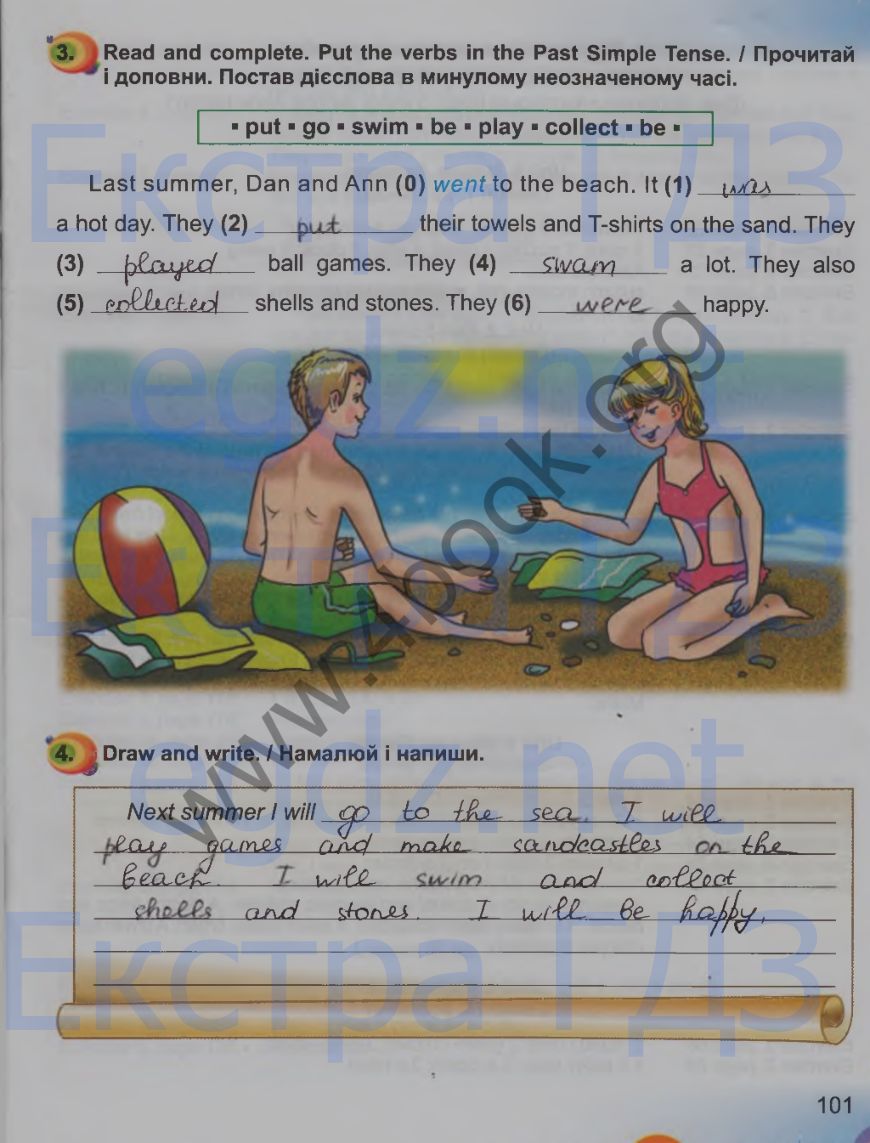 3. Read and complete. Put the verbs in the Past Simple Tense. / Прочитай
і доповни. Постав дієслова в минулому неозначеному часі.
▪ put ▪ go ▪ swim ▪ be ▪ play ▪ collect ▪ be ▪
Last summer, Dan and Ann (0) went to the beach. It (1) was
a hot day. They (2) put their towels and T-shirts on the sand. They
(3) played ball games. They (4) swam a lot. They also
(5) collected shells and stones. They (6) were happy.
4. Draw and write. / Намалюй і напиши.
Next summer I will go to the sea. I will
play games and make sandcastles on the
beach. I will swim and collect
shells and stones. I will be happy.
101
Екстра ГДЗ
egdz.net
Екстра ГДЗ
egdz.net
Екстра ГДЗ
www.4book.org